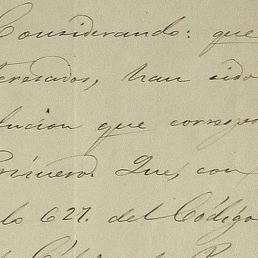 Considerando: que
teresados, han sido
lucion que corresp
Primero. Que, con
lo 627. del Código